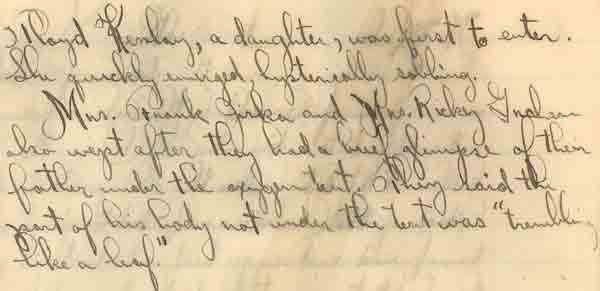 Floyd Kenlay, a daughter, was first to enter.
She quickly emerged, hysterically sobbing.
Mrs. Frank Girka and Mrs. Rickey
also wept after they had a brief glimpse of their
father under the oxygen tent. They said the
part of his body not under the tent was "trembling
like a leaf."